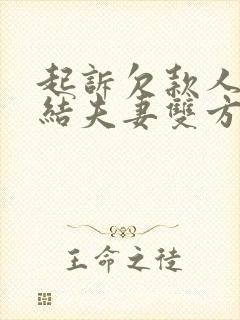 起訴欠款人
結夫妻雙方
王命之徒